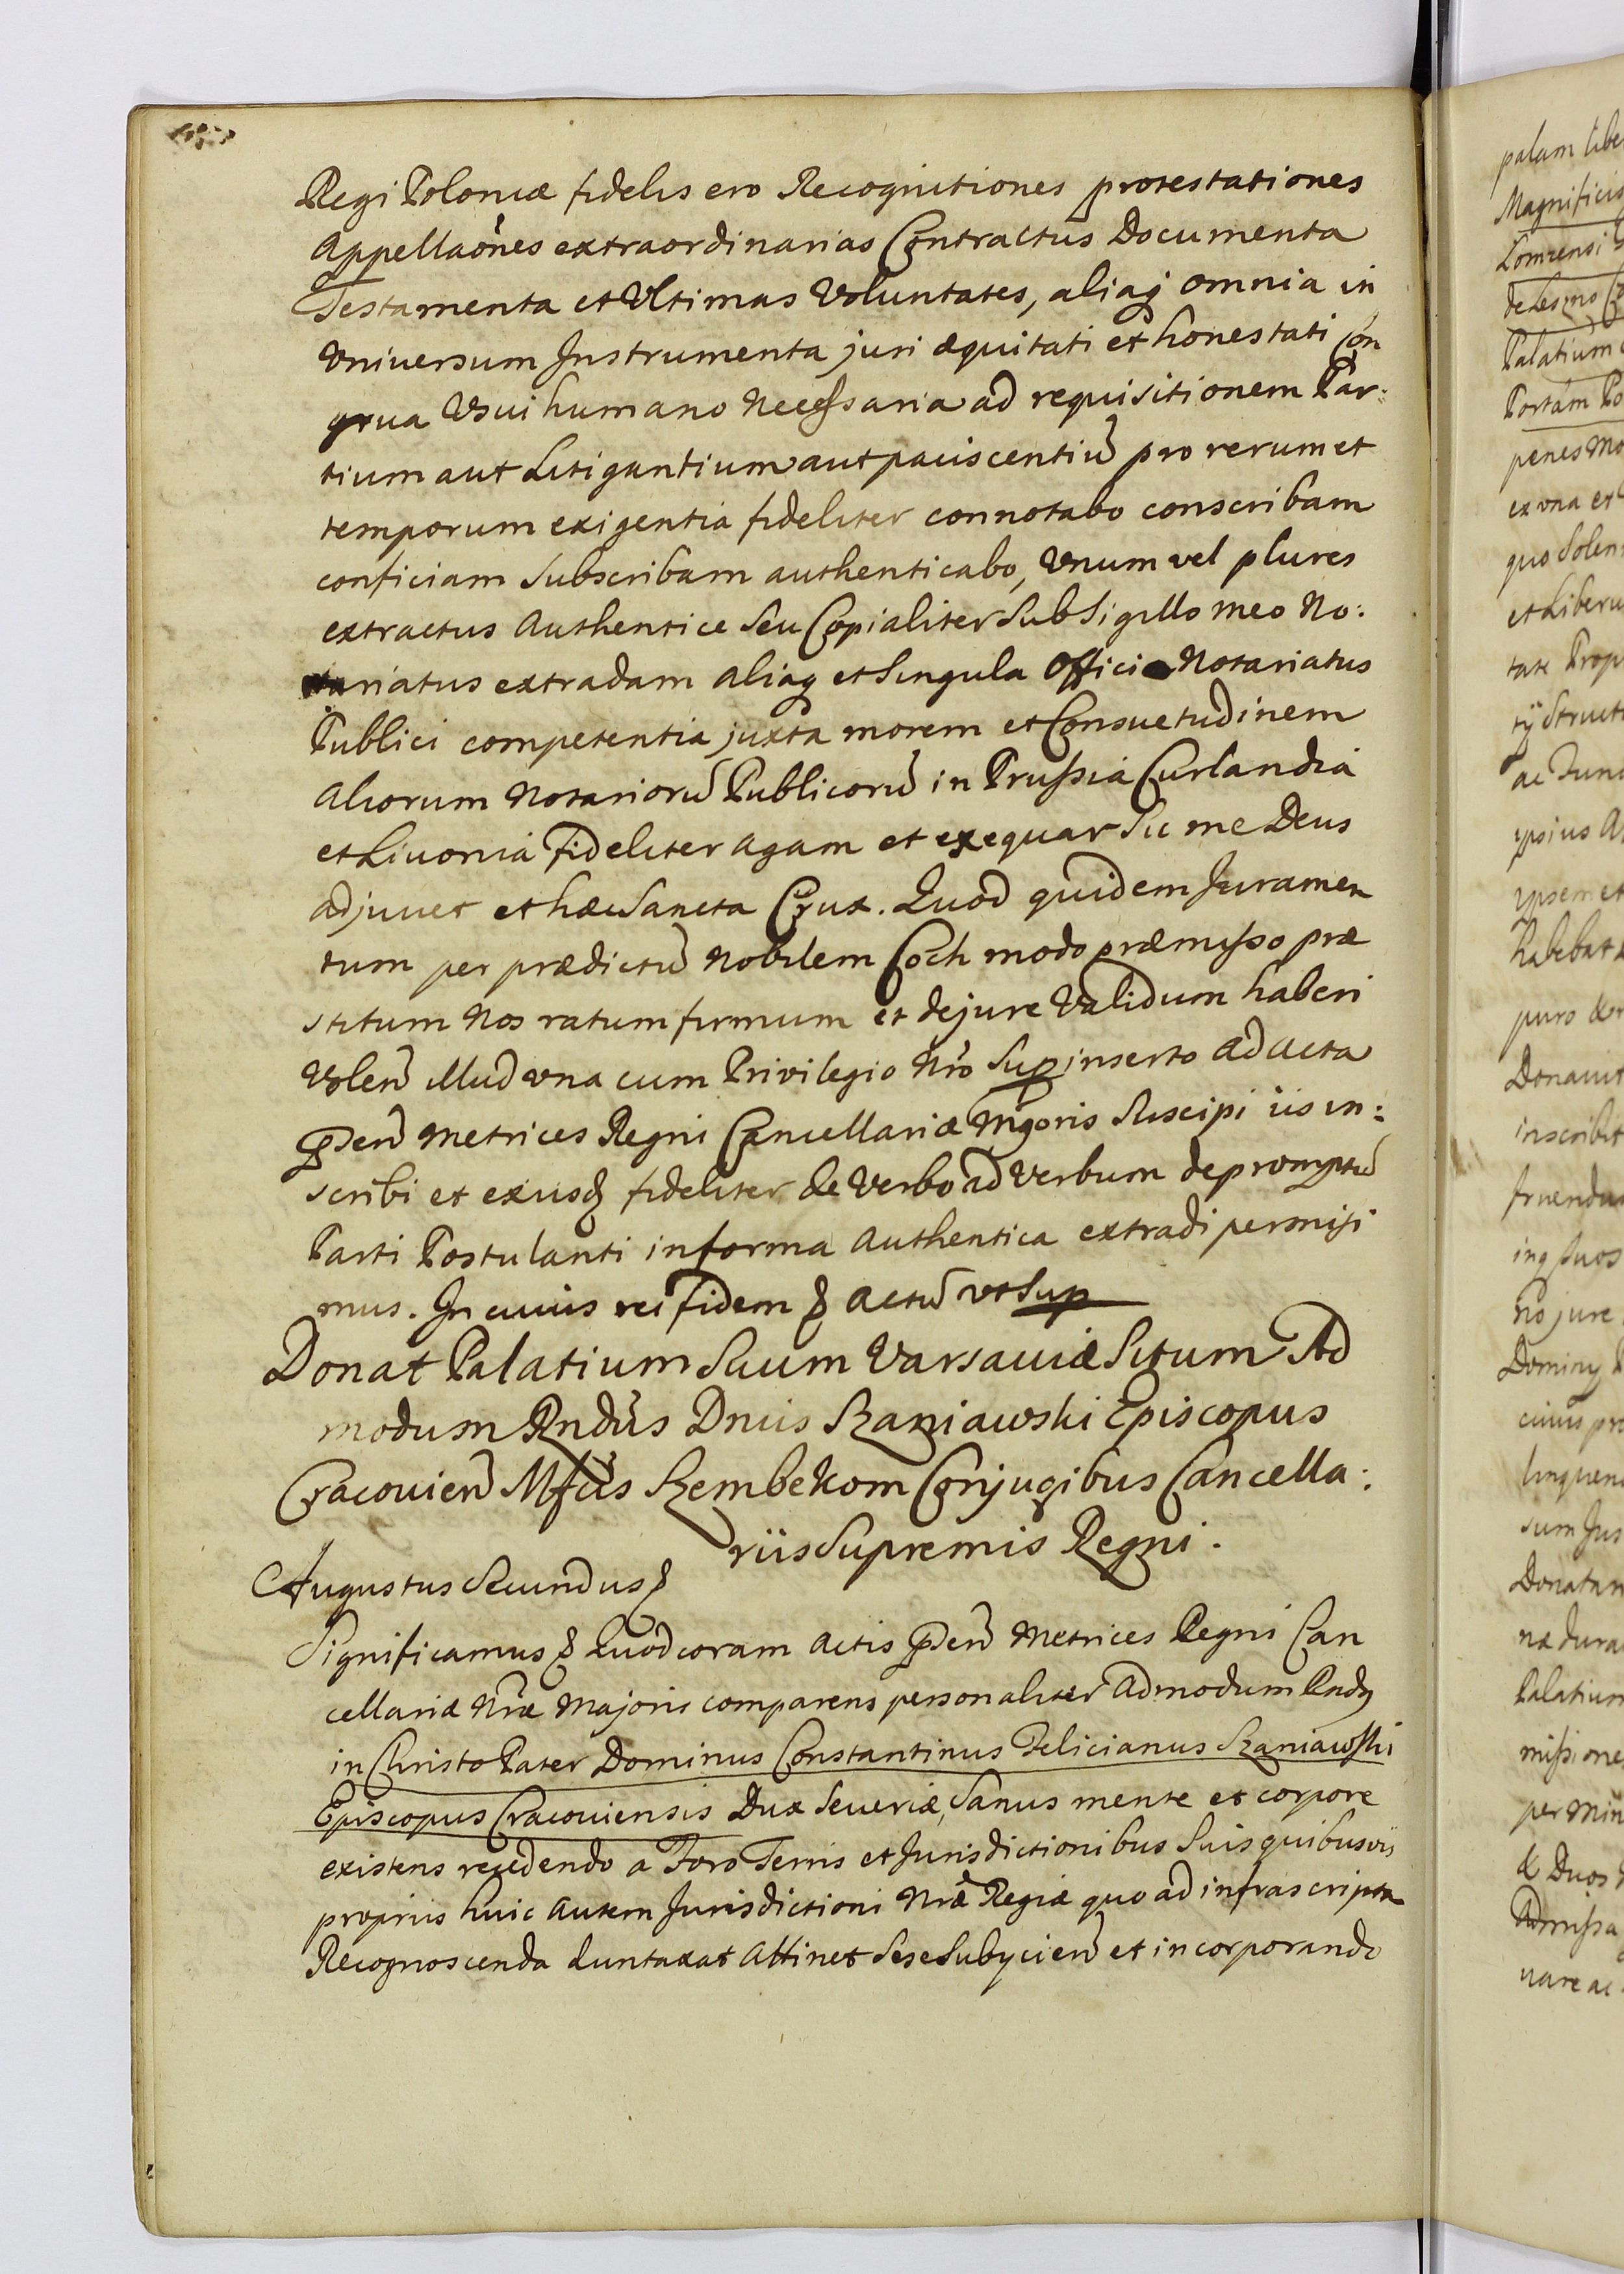 Regi Poloniæ fidelis ero Recognitiones protestationes
Appellaõnes extraordinarias Contractus Documenta
Testamenta et Vltimas Voluntates, aliaq omnia in
Vniuersum Instrumenta juri æquitati et honestati Con
grua Vsui humano Necessaria ad requisitionem Par:
tium aut Litigantium aut paciscentiũ pro rerum et
temporum exigentia fideliter connotabo conscribam
conficiam Subscribam authenticabo, Vnum vel plures
extractus Authentice Seu Copialiter Sub Sigillo meo No:
tariatus extradam aliaq et Singula Officio Notariatus
Publici competentia juxta morem et Consuetudinem
Aliorum Notariorũ Publicorũ in Prussia Curlandia
et Liuonia Fideliter agam et exequar Sic me Deus
adjuuet et hæc Sancta Crux. Quod quidem Juramen
tum per prædictũ Nobilem Coch modo præmisso præ
stitum Nos ratum firmum et de jure Validum haberi
Volen̄ illud vna cum Privilegio Nro Sup inserto ad acta
p̄sen̄ Metrices Regni Cancellariæ Mjoris Suscipi iis in:
scribi et exiisd fideliter de Verbo ad Verbum depromptũ
Parti Postulanti in forma Authentica extradi permisi
mus. In cuius rei fidem & Actũ vt Sup
Donat Palatium Suum Varsauiæ Situm Ad
modum Rndus Dnus Szaniawski Episcopus
Cracouien̄ Mfcis Szembekom Conjugibus Cancella:
riis Supremis Regni.
Augustus Secundus &
Significamus & Quod coram Actis p̄sen̄ Metrices Regni Can
cellariæ Nræ Majoris comparens personaliter Admodum Rndq
in Christo Pater Dominus Constantinus Felicianus Szaniawski
Episcopus Cracouiensis Dux Seueriæ, Sanus mente et corpore
existens recedendo a Foro Terris et Jurisdictionibus Suis quibusvis
propriis huic autem Jurisdictioni Nræ Regiæ quo ad infrascripta
Recognoscenda duntaxat Attinet Sese Subycien̄ et incorporando
palam libe
Magnificis
Lomzensi
Palatium
Portam Po
penes Mo
ex vna et
quo Solen
et Liberu
tate Prop
ac Fund
ypsius A
ypsemet
habebat
puro
Donauit
inscribit
fruendu
inq Suos
no jure
Dominq
cuius pro
linquen
sum Jus
Donatam
næ dura
Palatium
missione
per Min
& Duos
Admissa
uare ac